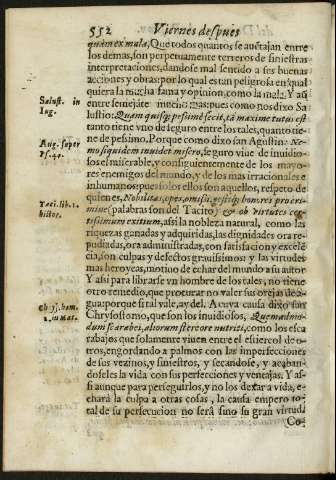 552 Viernes despues
quàm ex mala, Que todos quantos se auẽtajan entre
los demas, son perpetuamente terreros de siniestras
interpretaciones, dandose mal sentido a sus buenas
acciones y obras: por lo qual es tan peligrosa en qual
quiera la mucha fama y opinion, como la mala. Y assi
entre semejãte
Salust. in
Iug.
lustio: Quam quisq; pessimè fecit, tã maxime tutus est
tanto tiene vno de seguro entre los tales, quanto tie-
ne de pessimo. Porque como dixo san Agustin: Ne-
Aug. super
Ps. 40.
mo siquidem inuidet misero, seguro viue de inuidio-
sos el miserable, y consiguientemente de los mayo-
res enemigos del mundo, y de los mas irracionales e
inhumanos: pues solos ellos son aquellos, respeto de
quienes, Nobilitas, opes, omissi, gestiq; honores pro cri-
Taci. lib. 1.
histor.
mine (palabras son del Tacito) & ob virtutes cer-
tissimum exitium, assi la nobleza natural, como las
riquezas ganadas y adquiridas, las dignidades ora re-
pudiadas, ora administradas, con satisfacion y excelẽ-
cia, son culpas y defectos grauissimos: y las virtudes
mas heroycas, motiuo de echar del mundo a su autor
Y assi para librarse vn hombre de los tales, no tiene
otro remedio, que procurar no valer sus orejas de a-
gua: porque si tal vale, ay del. A cuya causa dixo san
Chrys. hom.
in Mat.
Chrysostomo, que son los inuidiosos, Quemadmo-
dum scarabei, aliorum stercore nutriti, como los esca
rabajos que solamente viuen entre el estiercol de o-
tros, engordando a palmos con las imperfecciones
de sus vezinos, y siniestros, y secandose, y acaban-
doseles la vida con sus perfecciones y ventajas. Y as-
si aunque para perseguirlos, y no los dexar a vida, e-
chará la culpa a otras cosas, la causa empero to-
tal de su persecucion no será sino su gran virtud.
Co-